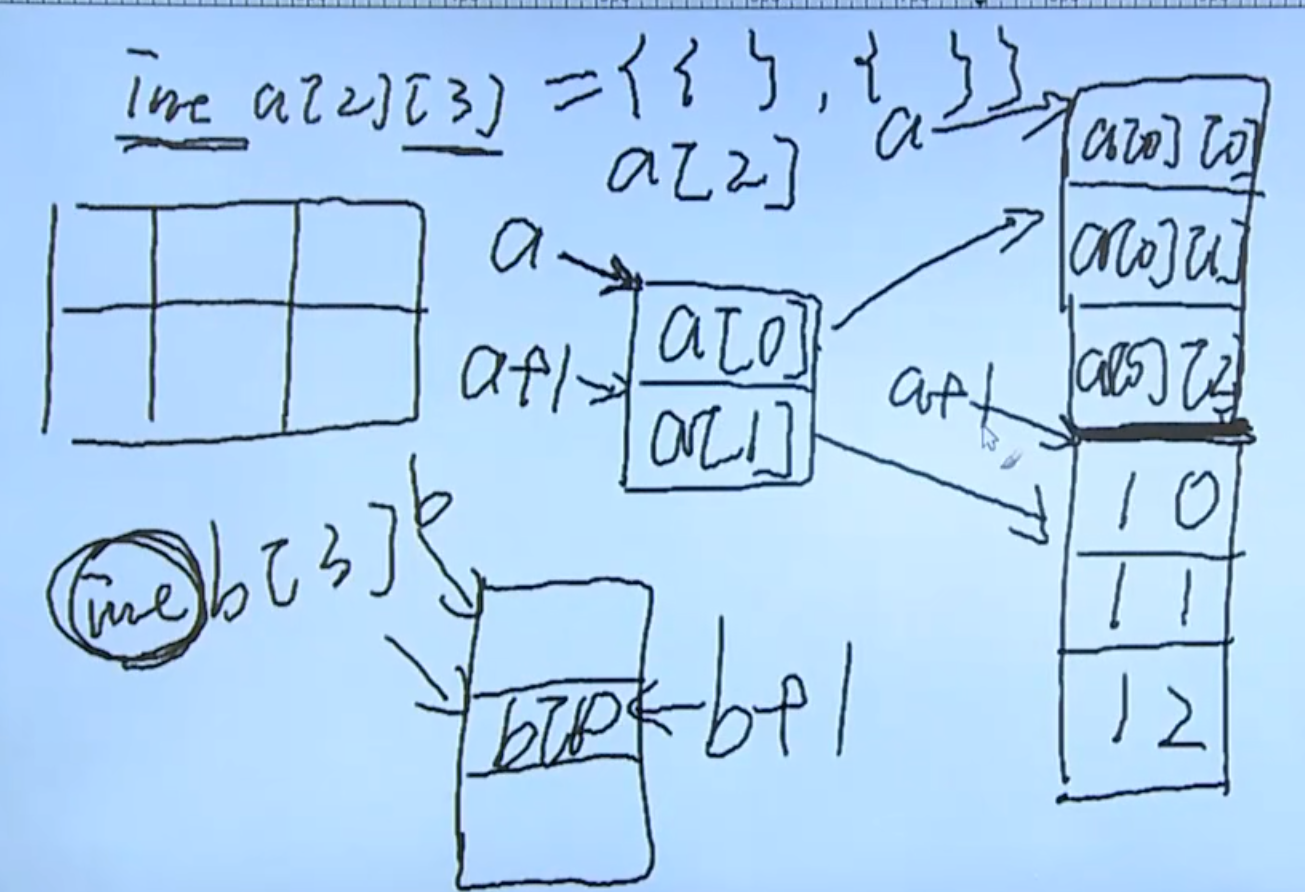 int a[2][3] = { { }, { } }
a[2]
a
a
a+1
a[0]
a[1]
a[0][0]
a[0][1]
a[0][2]
a+1
1 0
1 1
1 2
int b[3]
b
b[1]
b+1